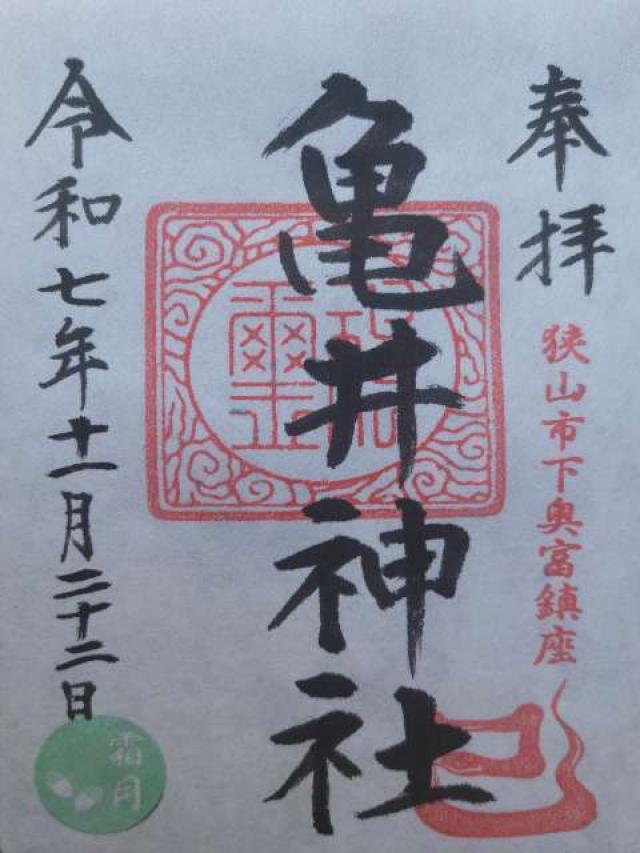 奉拝
狭山市下奥富鎮座
亀井神社
令和七年十一月二十二日
霜月
巳